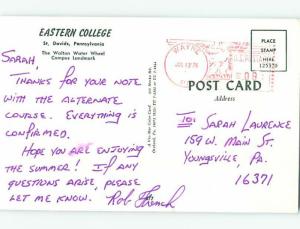 EASTERN COLLEGE
St. Davids, Pennsylvania
The Walton Water Wheel
Campus Landmark
WAYNE
PLACE
STAMP
HERE
POST CARD
Address
SARAH,
THANKS FOR YOUR NOTE
WITH THE ALTERNATE
COURSE. EVERYTHING IS
CONFIRMED.
HOPE YOU ARE ENJOYING
THE SUMMER! IF ANY
QUESTIONS ARISE, PLEASE
LET ME KNOW.
TO: SARAH LAURENCE
159 W. MAIN ST.
YOUNGSVILLE, PA.
16371